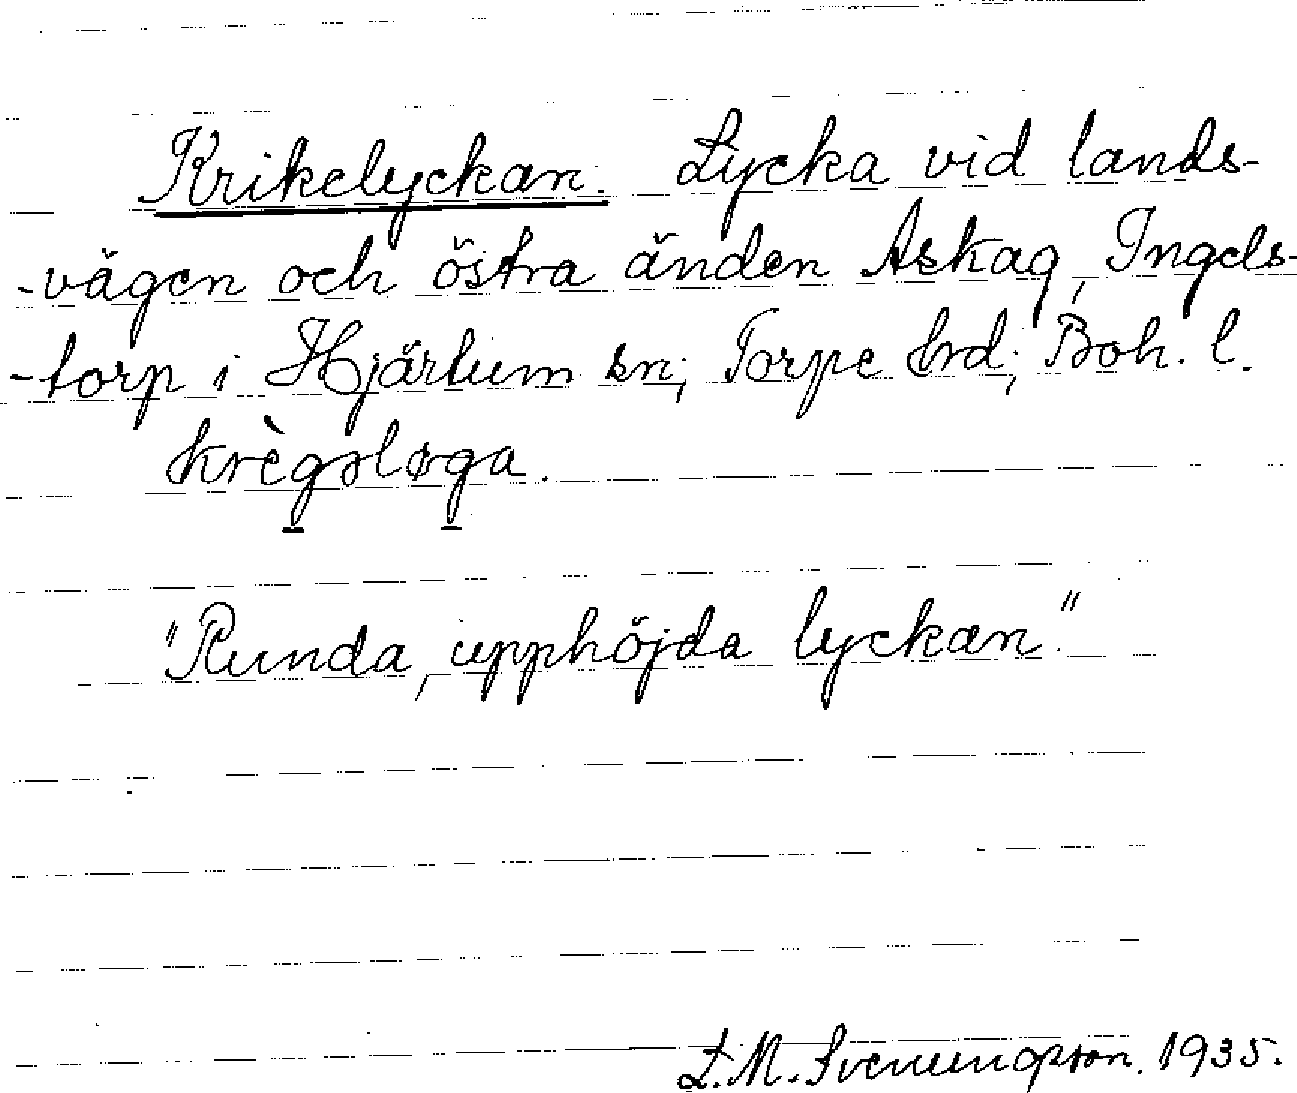 Krikelyckan. Lycka vid lands-
-vägen och östra änden Askag, Ingels-
-torp i Hjärtum sn; Torpe hrd; Boh. l.
krègəløga.
"Runda, upphöjda lyckan."
L. M. Svenungsson. 1935.